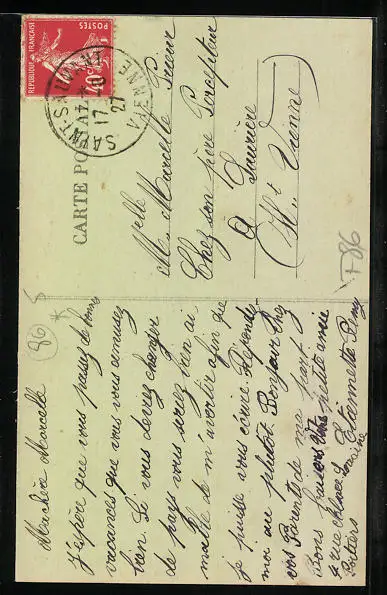 RÉPUBLIQUE FRANÇAISE
POSTES
40c
SAINT-SAUVANT
17
27
VIENNE
CARTE POSTALE
Melle Marcelle Prieur
Chez son père Percepteur
à Laurière
(Hte Vienne)
F86
86
Ma chère Marcelle
J'espère que vous passez de bonnes
vacances que vous vous amusez
bien Si vous devez changer
de pays vous seriez bien ai
mable de m'avertir afin que
je puisse vous écrire. Répondez
moi au plutôt. Bonjour chez
vos Parents de ma part
Bons baisers petite amie
4 rue
Poitiers